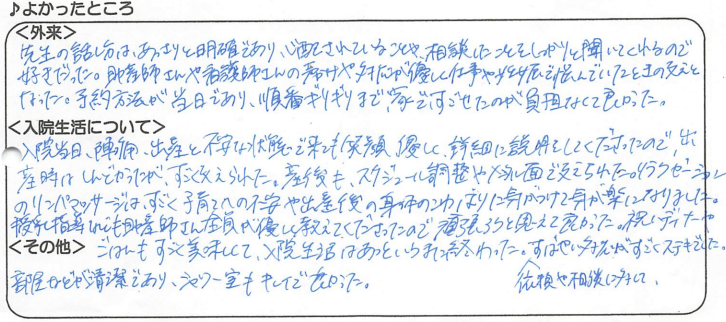 ♪よかったところ
<外来>
先生の話し方は、あっさりと明確であり、心配されていることや、相談したことをしっかりと聞いてくれるので
好きだった。助産師さんや看護師さんの声かけや対応が優しく仕事や で悩んでいたときの支えと
なった。予約方法が当日であり、順番ギリギリまで、家ですごせたのが負担なくて良かった。
<入院生活について>
入院当日、陣痛、出産と不安な状態で来ても笑顔、優しく、詳細に説明をしてくださったので、出
産時はしんどかったが、すごく支えられた。産後も、スケジュール調整やメンタル面で支えられた。リラクゼーション
のリンパマッサージは、すごく子育てへの不安や出産後の身体のこわばりに気がつけて気が楽になりました。
授乳指導などでも助産師さん全員が優しく教えてくださったので頑張ろうと思えて良かった。祝いディナーや
<その他> ごはんもすごく美味しくて、入院生活はあっというまに終わった。すばやい対応がすごくステキでした。
部屋などが清潔であり、シャワー室もキレイで良かった。 依頼や相談に対して、